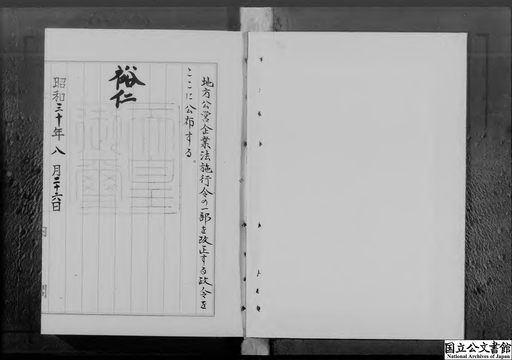 地方公営企業法施行令の一部を改正する政令を
ここに公布する。
裕仁
天皇
御璽
昭和三十年八月二十六日
内
閣
国立公文書館
National Archives of Japan